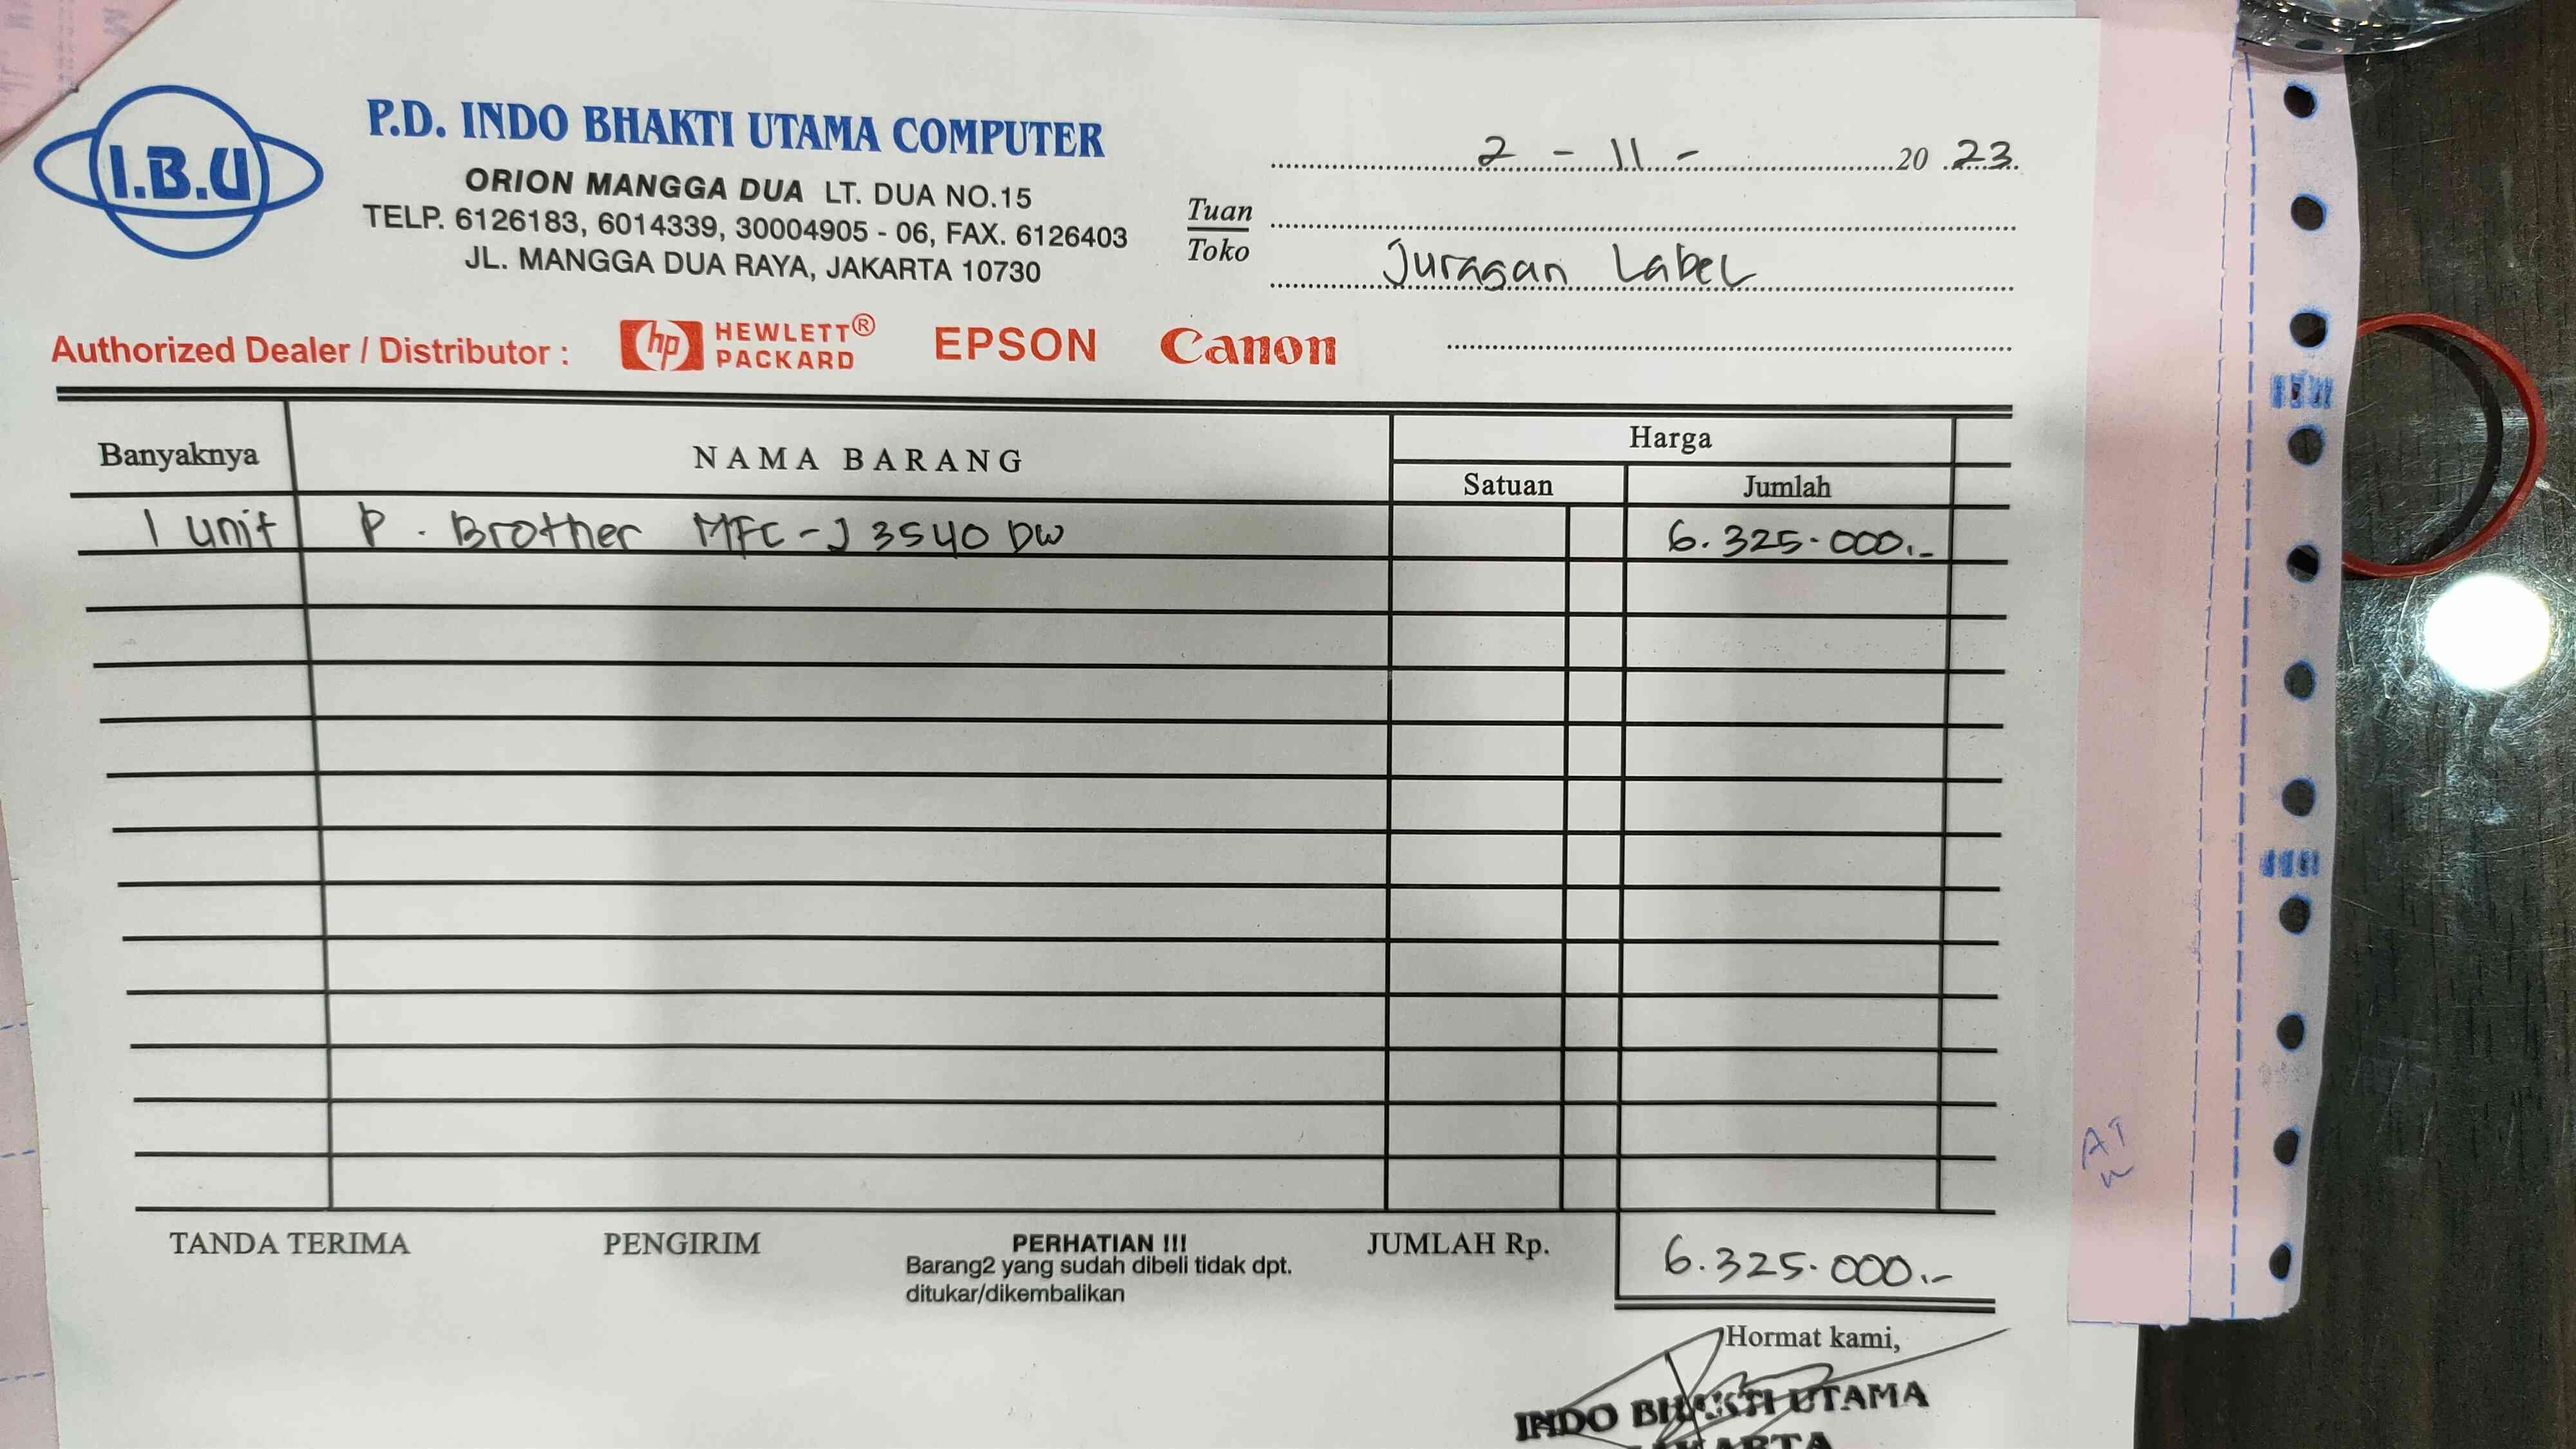 I.B.U
P.D. INDO BHAKTI UTAMA COMPUTER
ORION MANGGA DUA LT. DUA NO.15
TELP. 6126183, 6014339, 30004905 - 06, FAX. 6126403
JL. MANGGA DUA RAYA, JAKARTA 10730
2 - 11 - 20 23
Tuan
Toko
Juragan Label
Authorized Dealer / Distributor : hp HEWLETT® PACKARD EPSON Canon
Banyaknya NAMA BARANG Harga
Satuan Jumlah
1 unit P. Brother MFC-J3540 DW 6.325.000,-
TANDA TERIMA PENGIRIM PERHATIAN !!! JUMLAH Rp. 6.325.000,-
Barang2 yang sudah dibeli tidak dpt.
ditukar/dikembalikan
Hormat kami,
INDO BHAKTI UTAMA